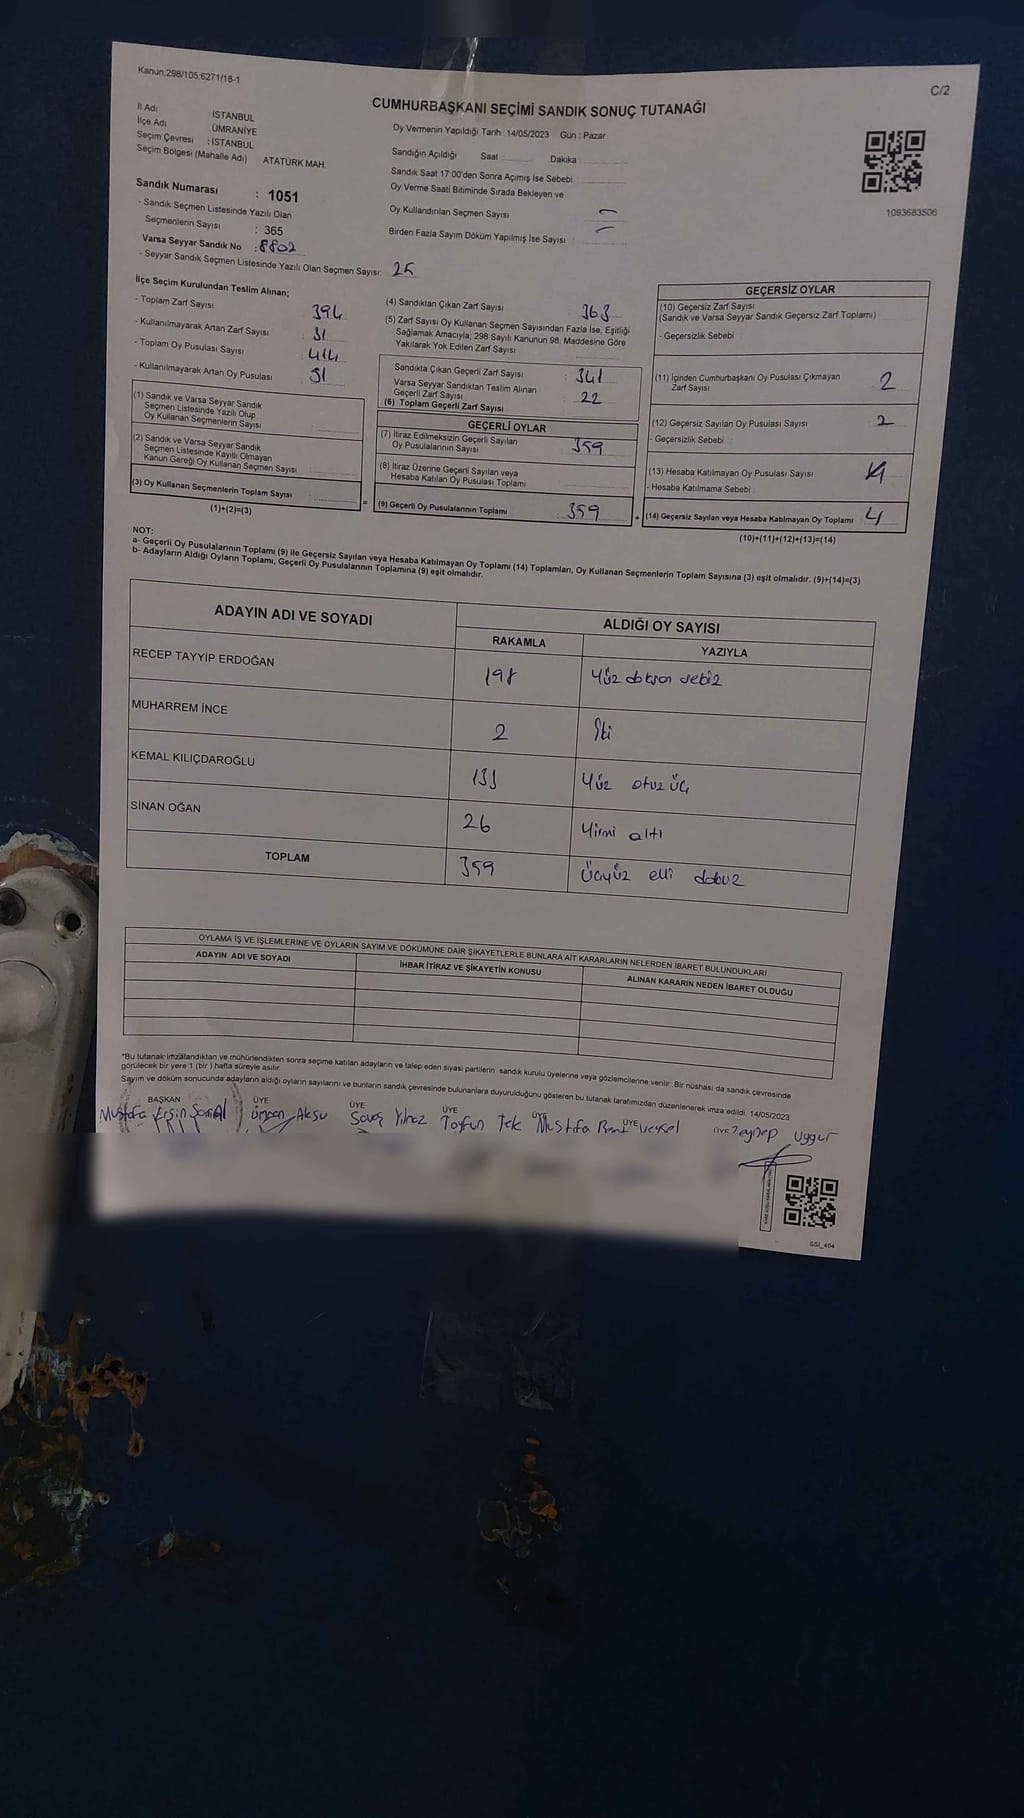 Kanun:298/105;6271/18-1
C/2
CUMHURBAŞKANI SEÇİMİ SANDIK SONUÇ TUTANAĞI
İl Adı İSTANBUL
İlçe Adı ÜMRANİYE
Seçim Çevresi : İSTANBUL
Seçim Bölgesi (Mahalle Adı) ATATÜRK MAH.
Sandık Numarası : 1051
- Sandık Seçmen Listesinde Yazılı Olan
Seçmenlerin Sayısı : 365
Varsa Seyyar Sandık No : 8802
- Seyyar Sandık Seçmen Listesinde Yazılı Olan Seçmen Sayısı: 25
Oy Vermenin Yapıldığı Tarih :14/05/2023 Gün : Pazar
Sandığın Açıldığı Saat Dakika
Sandık Saat 17:00'den Sonra Açımış İse Sebebi :
Oy Verme Saati Bitiminde Sırada Bekleyen ve
Oy Kullandırılan Seçmen Sayısı -
Birden Fazla Sayım Döküm Yapılmış İse Sayısı : -
1093683506
İlçe Seçim Kurulundan Teslim Alınan;
- Toplam Zarf Sayısı 394
- Kullanılmayarak Artan Zarf Sayısı 31
- Toplam Oy Pusulası Sayısı 414
- Kullanılmayarak Artan Oy Pusulası 51
(1) Sandık ve Varsa Seyyar Sandık
Seçmen Listesinde Yazılı Olup
Oy Kullanan Seçmenlerin Sayısı
(2) Sandık ve Varsa Seyyar Sandık
Seçmen Listesinde Kayıtlı Olmayan
Kanun Gereği Oy Kullanan Seçmen Sayısı
(3) Oy Kullanan Seçmenlerin Toplam Sayısı =
(1)+(2)=(3)
(4) Sandıktan Çıkan Zarf Sayısı 363
(5) Zarf Sayısı Oy Kullanan Seçmen Sayısından Fazla İse, Eşitliği
Sağlamak Amacıyla; 298 Sayılı Kanunun 98. Maddesine Göre
Yakılarak Yok Edilen Zarf Sayısı
Sandıkta Çıkan Geçerli Zarf Sayısı : 341
Varsa Seyyar Sandıktan Teslim Alınan
Geçerli Zarf Sayısı : 22
(6) Toplam Geçerli Zarf Sayısı
GEÇERLİ OYLAR
(7) İtiraz Edilmeksizin Geçerli Sayılan
Oy Pusulalarının Sayısı 359
(8) İtiraz Üzerine Geçerli Sayılan veya
Hesaba Katılan Oy Pusulası Toplamı
(9) Geçerli Oy Pusulalarının Toplamı : 359 +
GEÇERSİZ OYLAR
(10) Geçersiz Zarf Sayısı
(Sandık ve Varsa Seyyar Sandık Geçersiz Zarf Toplamı)
- Geçersizlik Sebebi
(11) İçinden Cumhurbaşkanı Oy Pusulası Çıkmayan
Zarf Sayısı 2
(12) Geçersiz Sayılan Oy Pusulası Sayısı 2
- Geçersizlik Sebebi
(13) Hesaba Katılmayan Oy Pusulası Sayısı
- Hesaba Katılmama Sebebi
(14) Geçersiz Sayılan veya Hesaba Katılmayan Oy Toplamı 4
(10)+(11)+(12)+(13)=(14)
NOT:
a- Geçerli Oy Pusulalarının Toplamı (9) ile Geçersiz Sayılan veya Hesaba Katılmayan Oy Toplamı (14) Toplamları, Oy Kullanan Seçmenlerin Toplam Sayısına (3) eşit olmalıdır. (9)+(14)=(3)
b- Adayların Aldığı Oyların Toplamı, Geçerli Oy Pusulalarının Toplamına (9) eşit olmalıdır.
ADAYIN ADI VE SOYADI ALDIĞI OY SAYISI
RAKAMLA YAZIYLA
RECEP TAYYİP ERDOĞAN 198 Yüz doksan sekiz
MUHARREM İNCE 2 İki
KEMAL KILIÇDAROĞLU 133 Yüz otuz üç
SİNAN OĞAN 26 Yirmi altı
TOPLAM 359 Üçyüz elli dokuz
OYLAMA İŞ VE İŞLEMLERİNE VE OYLARIN SAYIM VE DÖKÜMÜNE DAİR ŞİKAYETLERLE BUNLARA AİT KARARLARIN NELERDEN İBARET BULUNDUKLARI
ADAYIN ADI VE SOYADI İHBAR İTİRAZ VE ŞİKAYETİN KONUSU ALINAN KARARIN NEDEN İBARET OLDUĞU
*Bu tutanak imzalandıktan ve mühürlendikten sonra seçime katılan adayların ve talep eden siyasi partilerin sandık kurulu üyelerine veya gözlemcilerine verilir. Bir nüshası da sandık çevresinde
görülecek bir yere 1 (bir) hafta süreyle asılır.
Sayım ve döküm sonucunda adayların aldığı oyların sayılarını ve bunların sandık çevresinde bulunanlara duyurulduğunu gösteren bu tutanak tarafımızdan düzenlenerek imza edildi. 14/05/2023
BAŞKAN ÜYE ÜYE ÜYE ÜYE ÜYE ÜYE
Mustafa Ersin Ümran Aksu Savaş Yılmaz Tayfun Tek Mustafa Veysel Zeynep Uygur
SSİ_404